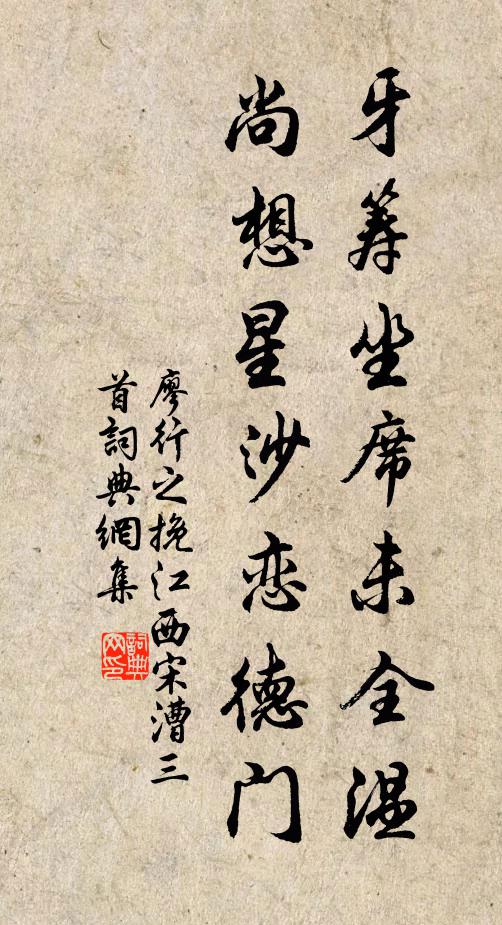 牙筹坐席未全温
尚想星沙恋德门
廖行之挽江西宋漕三
首詞典網集
詞典网印